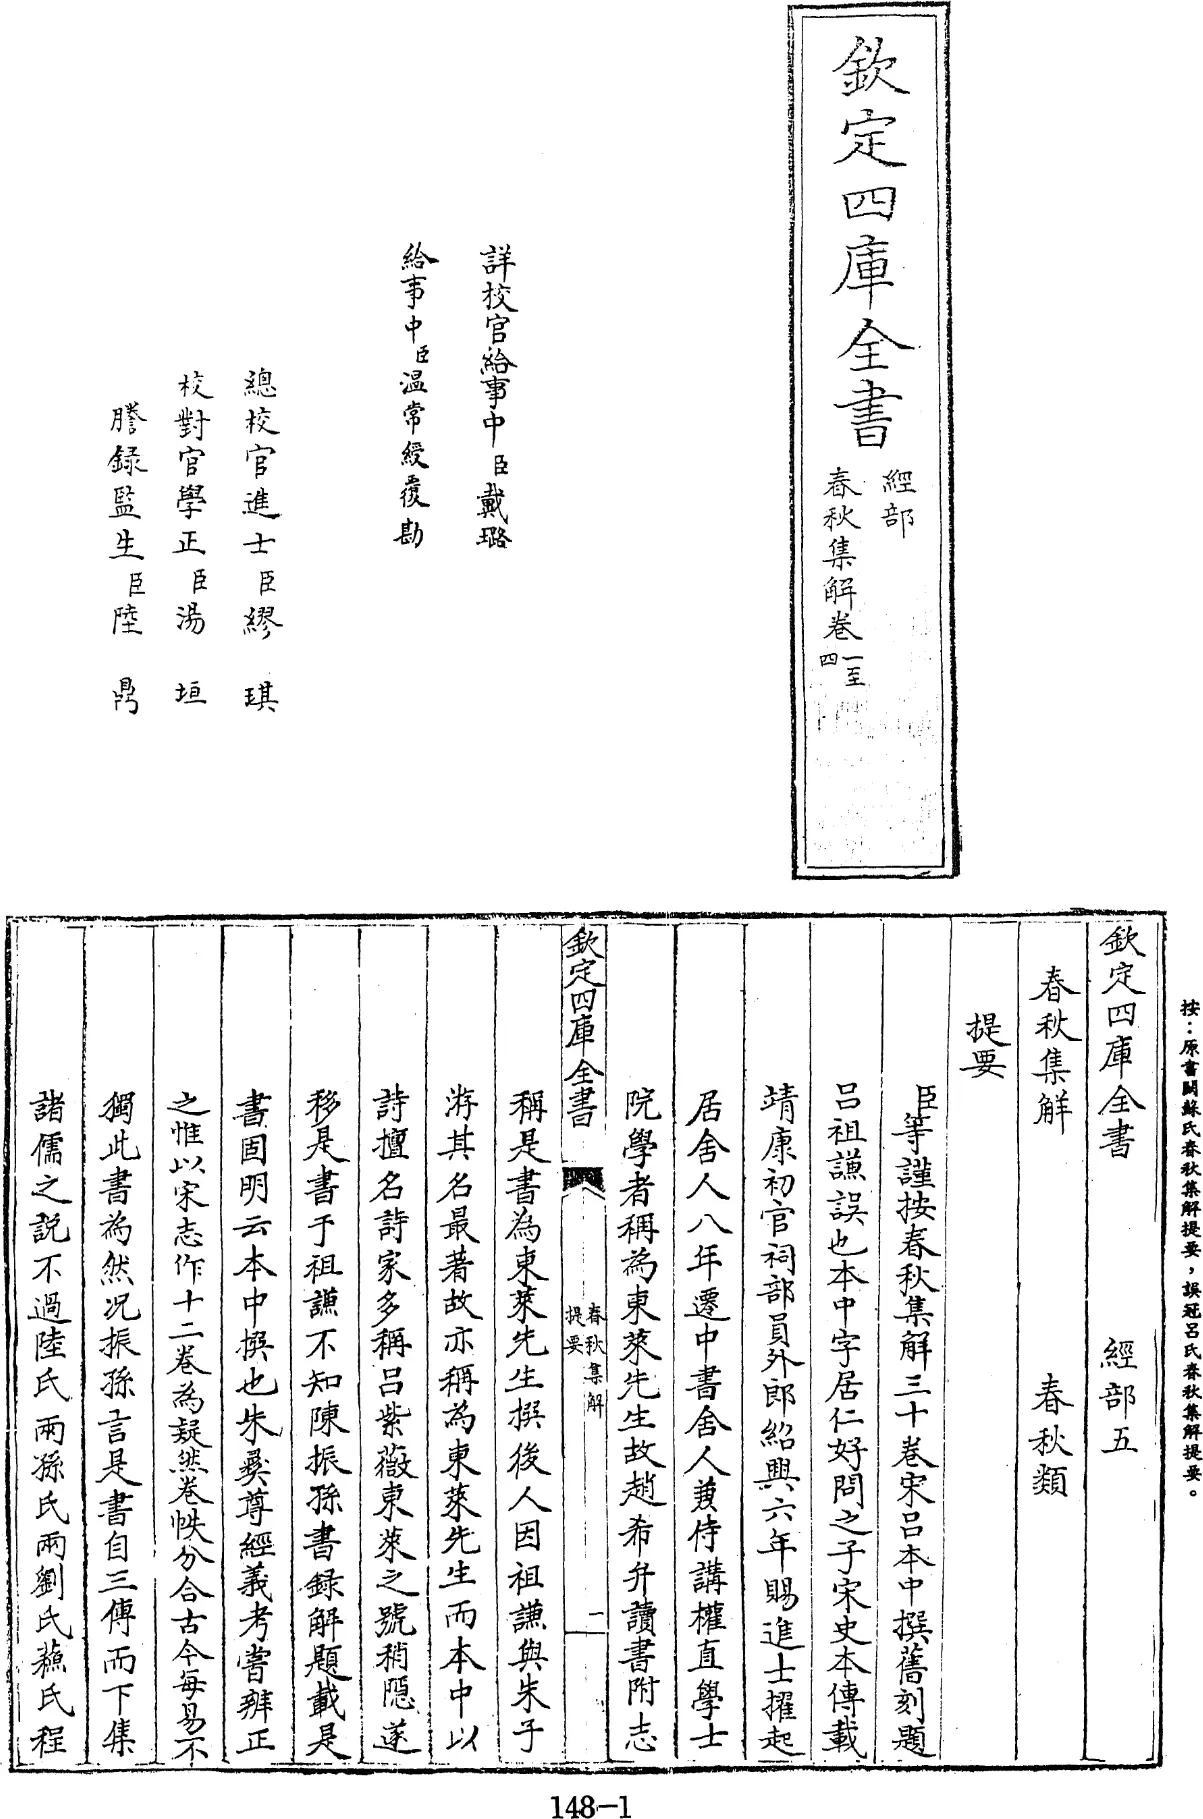 欽定四庫全書
經部
春秋集解卷一至四
詳校官給事中臣戴璐
給事中臣溫常綬覆勘
總校官進士臣繆琪
校對官學正臣湯垣
謄録監生臣陸鼎
按：原書闕蘇氏春秋集解提要，誤冠呂氏春秋集解提要。
欽定四庫全書 經部五
春秋集解 春秋類
提要
臣等謹按春秋集解三十卷宋呂本中撰舊刻題
呂祖謙誤也本中字居仁好問之子宋史本傳載
靖康初官祠部員外郎紹興六年賜進士擢起
居舍人八年遷中書舍人兼侍講權直學士
院學者稱為東萊先生故趙希弁讀書附志
欽定四庫全書
春秋集解
提要
一
稱是書為東萊先生撰後人因祖謙與朱子
游其名最著故亦稱為東萊先生而本中以
詩擅名詩家多稱呂紫薇東萊之號稍隱遂
移是書于祖謙不知陳振孫書録解題載是
書固明云本中撰也朱彝尊經義考嘗辨正
之惟以宋志作十二卷為疑然卷帙分合古今每易不
獨此書為然况振孫言是書自三傳而下集
諸儒之説不過陸氏兩孫氏兩劉氏蘇氏程
148-1